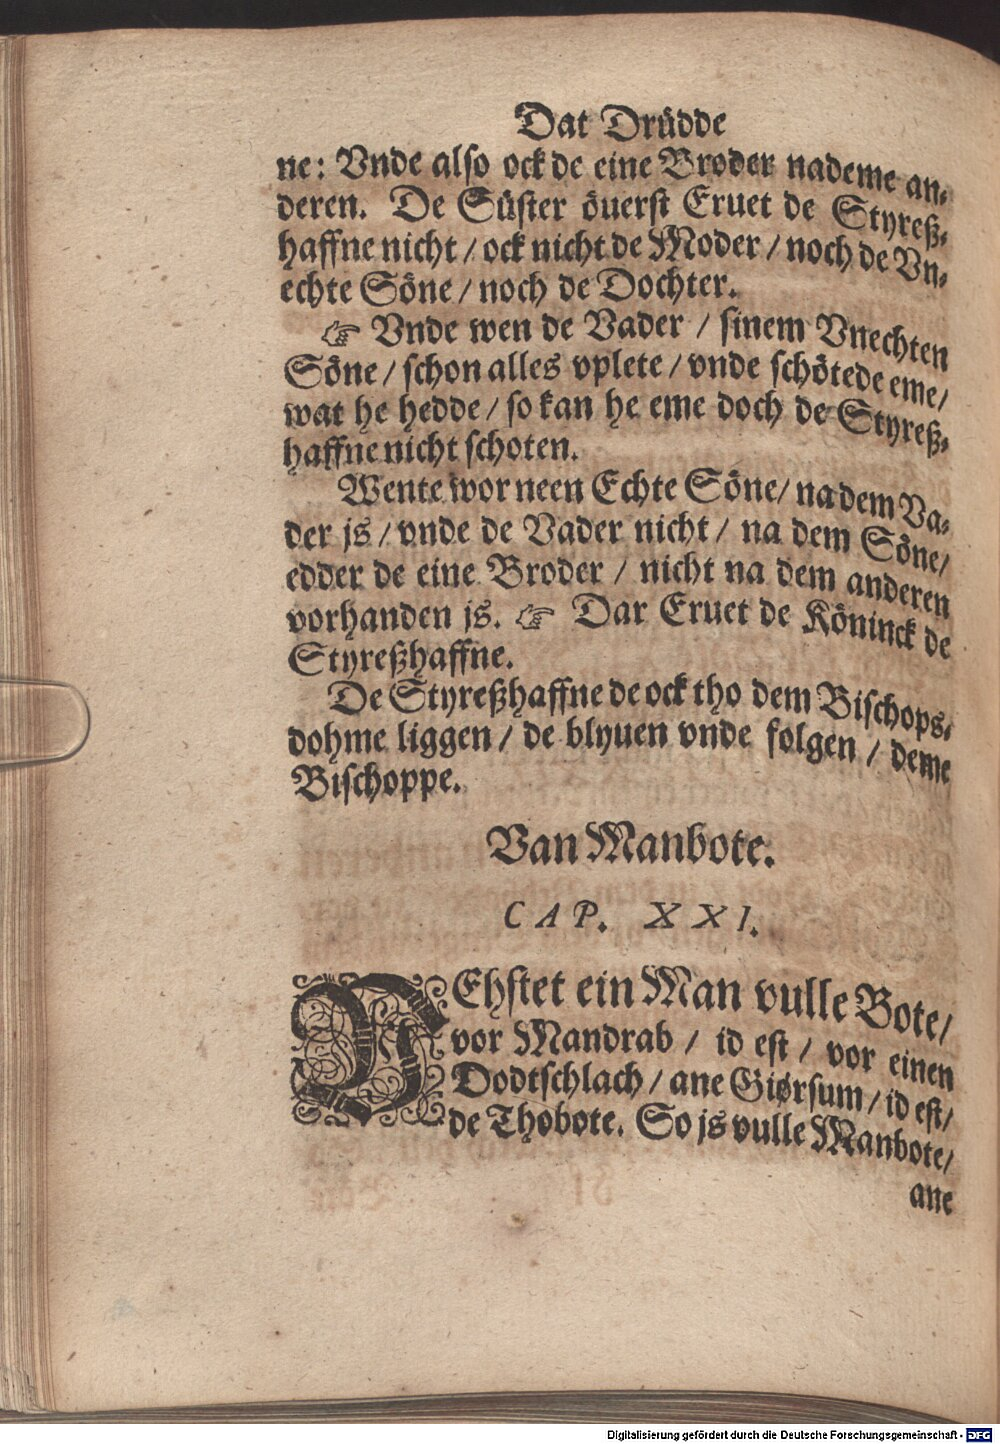 Dat Drüdde
ne: Vnde also ock de eine Broder nademe an⸗
deren. De Süster öuerst Eruet de Styreß⸗
haffne nicht / ock nicht de Moder / noch de Vn⸗
echte Söne / noch de Dochter.
☞ Vnde wen de Vader / sinem Vnechten
Söne / schon alles vplete / vnde schötede eme /
wat he hedde / so kan he eme doch de Styreß⸗
haffne nicht schoten.
Wente wor neen Echte Söne / na dem Va⸗
der js / vnde de Vader nicht / na dem Söne /
edder de eine Broder / nicht na dem anderen
vorhanden js. ☞ Dar Eruet de Köninck de
Styreßhaffne.
De Styreßhaffne de ock tho dem Bischops⸗
dohme liggen / de blyuen vnde folgen / deme
Bischoppe.
Van Manbote.
CAP. XXI.
BEhstet ein Man vulle Bote /
vor Mandrab / id est / vor einen
Dodtschlach / ane Giørsum / id est /
de Thobote. So js vulle Manbote /
ane
Digitalisierung gefördert durch die Deutsche Forschungsgemeinschaft - DFG